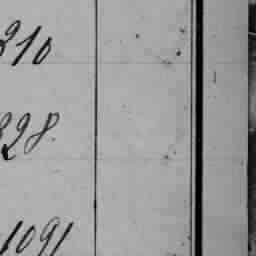 210
328
1091